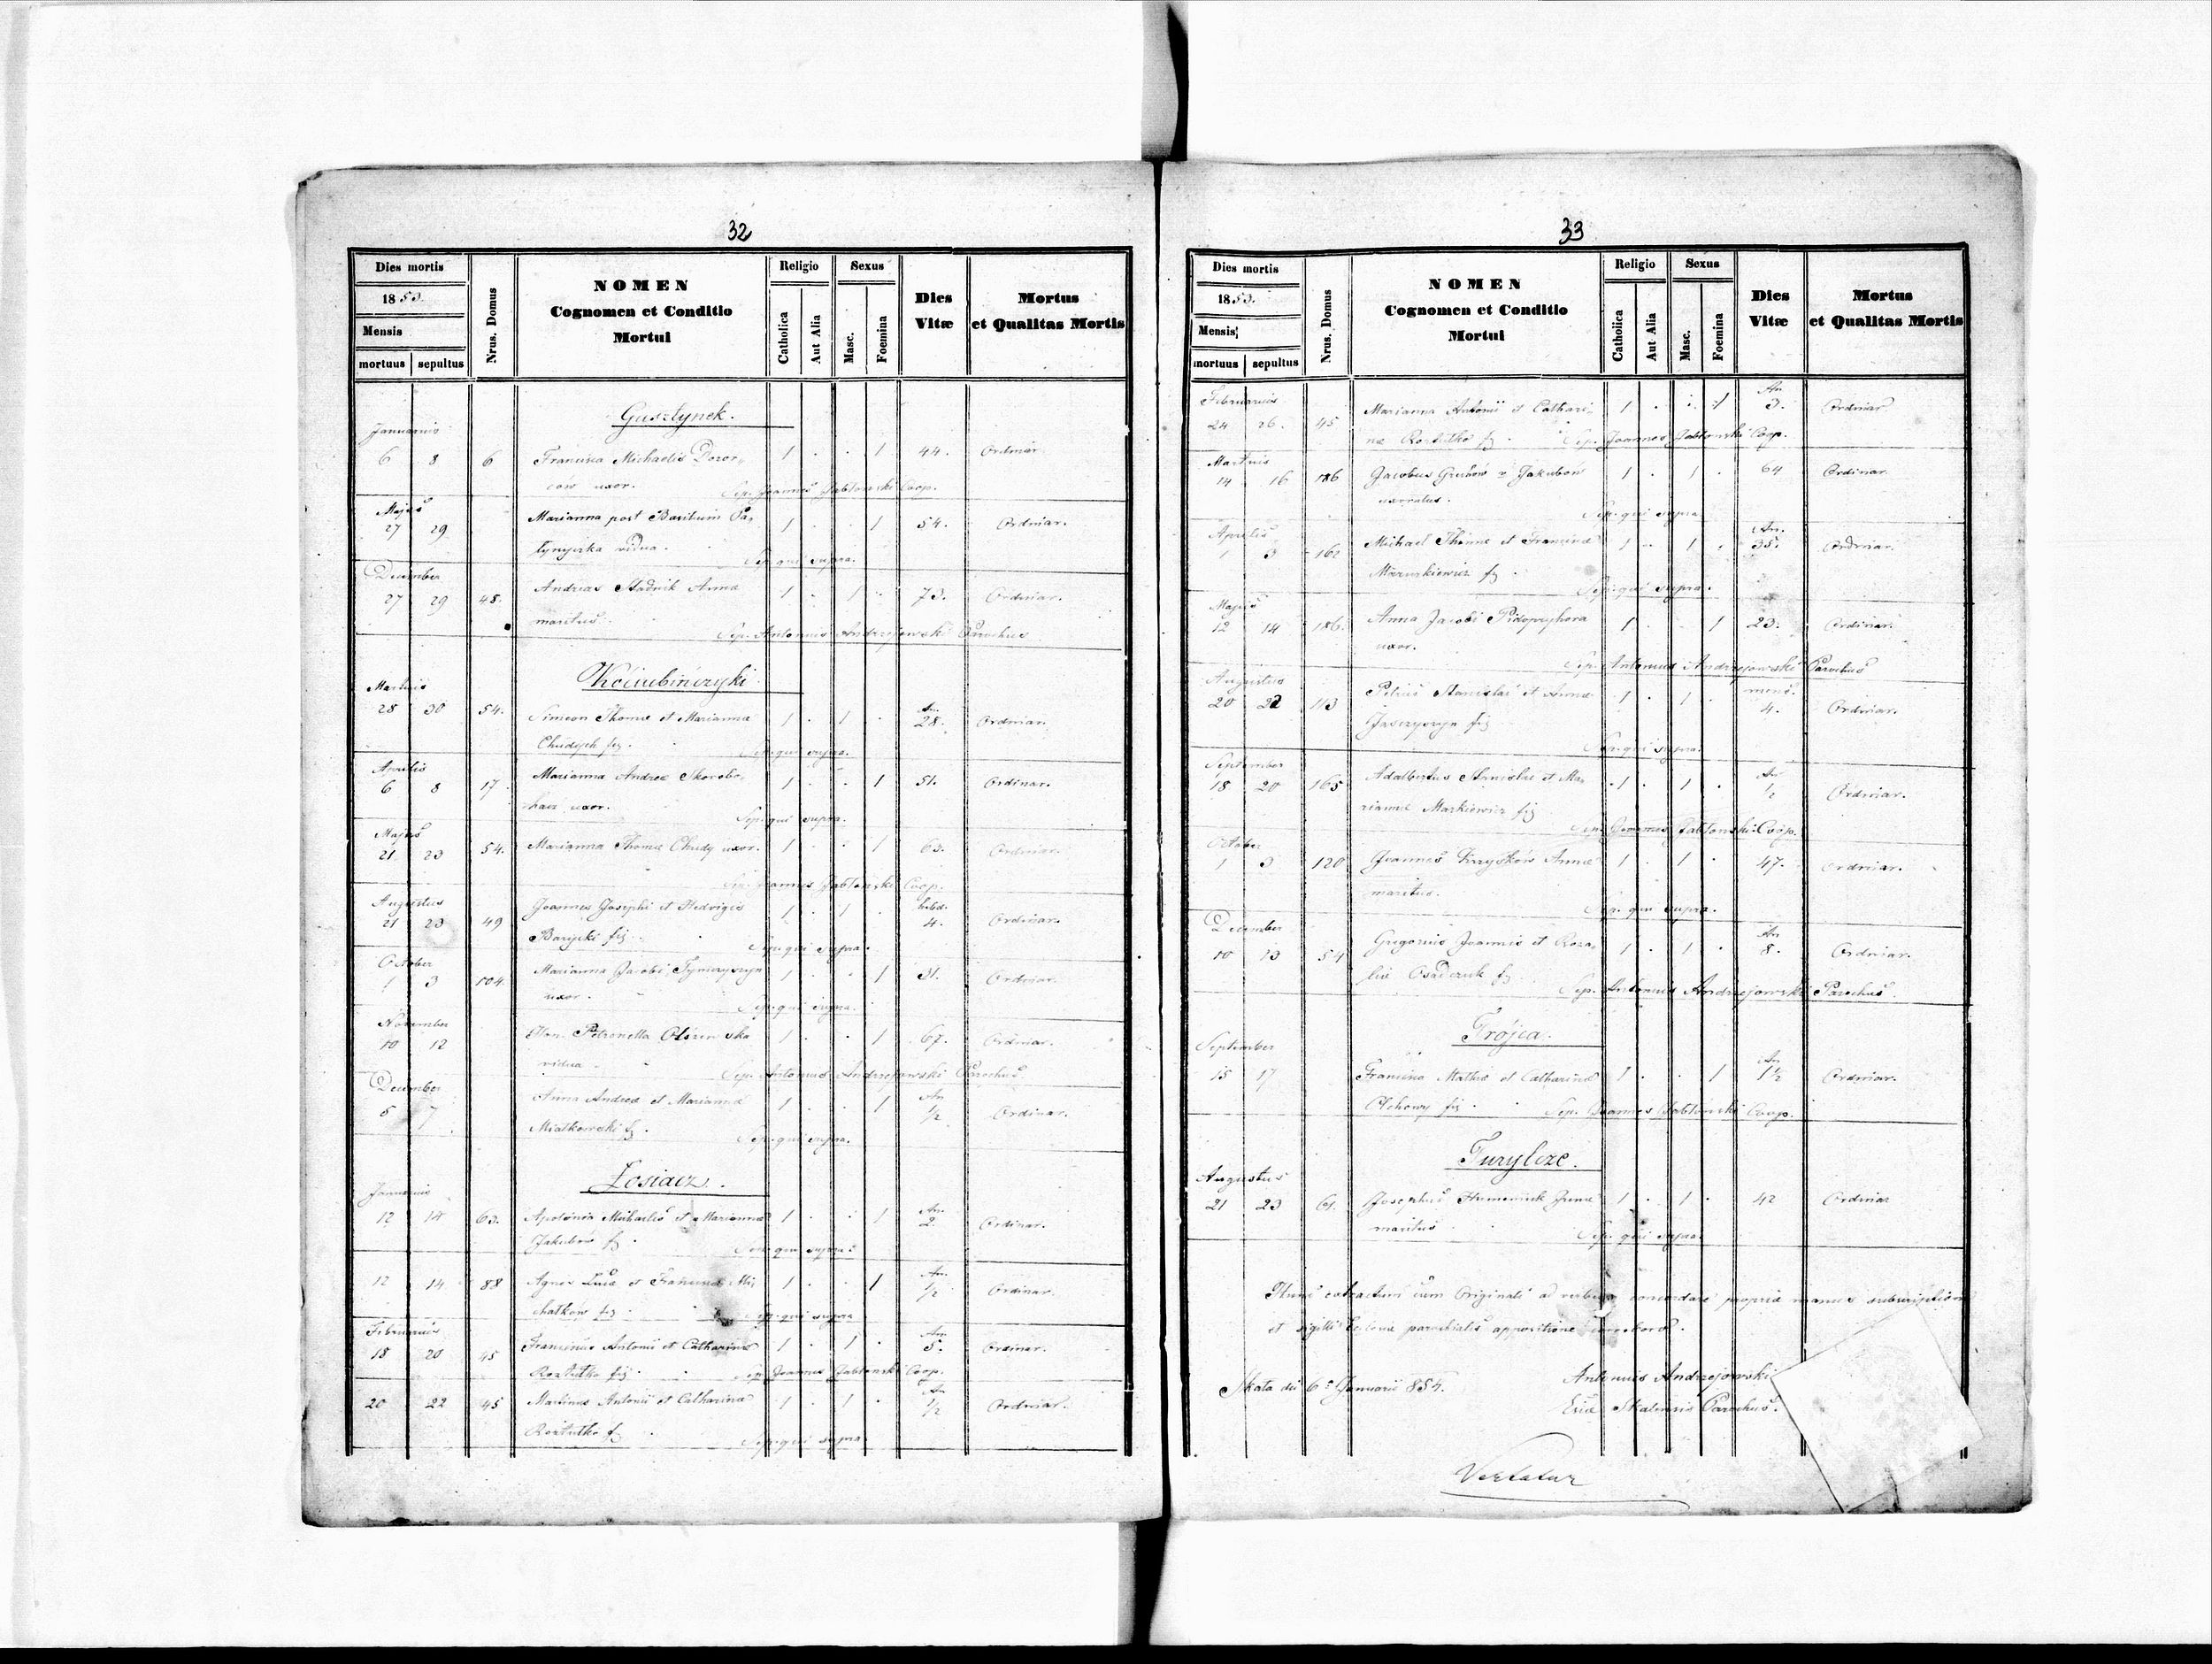 32
Dies mortis
1853.
Mensis
mortuus sepultus
Nrus. Domus
NOMEN
Cognomen et Conditio
Mortui
Religio
Catholica
Aut Alia
Sexus
Masc.
Foemina
Dies
Vitæ
Mortus
et Qualitas Mortis
Gusztynek.
Januarius
6 8 6 Francisca Michaelis Dozor- 1 . . 1 44. Ordinar
cow uxor. Sep. Joannes Jabłonski Coop.
Majus
27 29 Marianna post Basilium 1 . . 1 54. Ordinar.
vidua. Sep. qui supra.
December
27 29 48. Andreas Stadnik Annæ 1 . 1 . 73. Ordinar.
maritus. Sep. Antonius Andrzejowski Parochus
Kóciubińczyki
Martius
28 30 54. Simeon Thomæ et Mariannæ 1 . 1 . An. 28. Ordinar.
Chudych fig. Sep. qui supra.
Aprilis
6 8 17 Marianna Andreæ Skorobo- 1 . . 1 51. Ordinar.
hacz uxor. Sep. qui supra.
Majus
21 23 54. Marianna Thomæ Chudy uxor. 1 . . 1 63. Ordinar.
Sep. Joannes Jabłonski Coop.
Augustus
21 23 49 Joannes Josephi et Hedvigis 1 . 1 . hebd. 4. Ordinar.
Barycki fig. Sep. qui supra.
October
1 3 104. Marianna Jacobi Tymczyszyn 1 . . 1 31. Ordinar.
uxor. Sep. qui supra.
November
10 12 Petronella Olszewska 1 . . 1 67. Ordinar.
vidua Sep. Antonius Andrzejowski Parochus
December
5 7 Anna Andreæ et Mariannæ 1 . . 1 An 1/2 Ordinar.
Miatkowski fg. Sep. qui supra.
Łosiacz.
Januarius
12 14 63. Apolonia Michaelis et Mariannæ 1 . . 1 An. 2. Ordinar.
Jakubów fg. Sep. qui supra.
12 14 88 Agnes Lucæ et Franciscæ Mi- 1 . . 1 An. 1/2 Ordinar.
chatkow fig. Sep. qui supra
Februarius
18 20 45 Franciscus Antonii et Catharinæ 1 . 1 . An. 5. Ordinar.
Roztutko fig. Sep. Joannes Jabłonski Coop.
20 22 45 Martinus Antonii et Catharinæ 1 . 1 . An 1/2 Ordinar.
Roztutko fg. Sep. qui supra
33
Dies mortis
1853.
Mensis
mortuus sepultus
Nrus. Domus
NOMEN
Cognomen et Conditio
Mortui
Religio
Catholica
Aut Alia
Sexus
Masc.
Foemina
Dies
Vitæ
Mortus
et Qualitas Mortis
Februarius
24 26. 45 Marianna Antonii et Cathari- 1 . . 1 An 3. Ordinar
næ Roztutko fg. Sep. Joannes Jabłonski Coop.
Martius
14 16 186 Jacobus Grubów v. Jakubow 1 . 1 . 64 Ordinar.
uxoratus. Sep. qui supra
Aprilis
1 3 162 Michael Thomæ et Franciscæ 1 . 1 . An. 35. Ordinar.
Mazurkiewicz fg. Sep. qui supra.
Majus
12 14 186. Anna Jacobi Pidopryhora 1 . . 1 23. Ordinar.
uxor. Sep. Antonius Andrzejowski Parochus
Augustus
20 22 113 Petrus Stanislai et Annæ 1 . 1 . mens. 4. Ordinar.
fig Sep. qui supra.
September
18 20 165 Adalbertus Stanislai et Ma- 1 . 1 . An 1/2 Ordinar.
riannæ Markiewicz fig Sep. Joannes Jabłonski Coop.
October
1 3 120 Joannes Krzyśków Annæ 1 . 1 . 47. Ordinar.
maritus. Sep. qui supra.
December
10 13 54 Gregorius Joannis et Roza- 1 . 1 . An 8. Ordinar.
liæ Osadczuk fg. Sep. Antonius Andrzejowski Parochus
Trójca.
September
15 17 Francisca Mathiæ et Catharinæ 1 . . 1 An 1 1/2 Ordinar.
Olchowy fig. Sep. Joannes Jabłonski Coop.
Turylcze.
Augustus
21 23 61. Josephus Humeniuk 1 . 1 . 42 Ordinar
maritus Sep. qui supra.
Hunc extractum cum Originali ad verbum concordare propriæ manus subscriptione
et sigilli Ecclesiæ parochialis appositione corroboro.
Skała die 6a Januarii 854.
Antonius Andrzejowski
Ecclæ Skalensis Parochus.
Vertatur